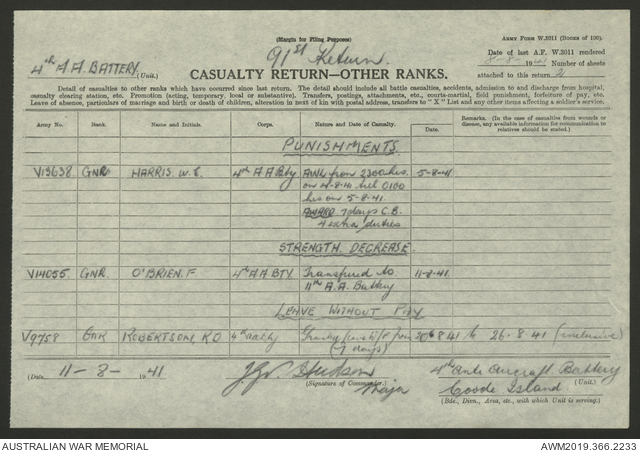 (Margin for Filing Purposes)
ARMY FORM W.3011 (BOOKS OF 100).
91st Return.
Date of last A.F. W.3011 rendered
8-8-1941 Number of sheets
attached to this return 21
4th A A. BATTERY (Unit.)
CASUALTY RETURN—OTHER RANKS.
Detail of casualties to other ranks which have occurred since last return. The detail should include all battle casualties, accidents, admission to and discharge from hospital,
casualty clearing station, etc. Promotion (acting, temporary, local or substantive). Transfers, postings, attachments, etc., courts-martial, field punishment, forfeiture of pay, etc.
Leave of absence, particulars of marriage and birth or death of children, alteration in next of kin with postal address, transfers to "X" List and any other items affecting a soldier's service.
Army No. Rank. Name and Initials. Corps. Nature and Date of Casualty. Date. Remarks. (In the case of casualties from wounds or disease, any available information for communication to relatives should be stated.)
PUNISHMENTS
V13638 GNR HARRIS. W. E. 4th A A Bty AWL from 2300 hrs. 5-8-41
on 4-8-41 till 0100
hrs on 5-8-41.
AWARD 7 days C.B.
4 extra duties
STRENGTH DECREASE.
V14055 GNR. O'BRIEN. F. 4th A A BTY. Transfered to 11-8-41.
11th A.A. Battery
LEAVE WITHOUT PAY
V9758 GNR ROBERTSON, K D 4th aa bty from 20-8-41 to 26-8-41 (inclusive)
(7 days)
(Date 11-8-1941 Hudson
(Signature of Commander.)
Major
4th Anti Aircraft Battery
(Unit.)
Coode Island.
(Bde., Divn., Area, etc., with which Unit is serving.)
AUSTRALIAN WAR MEMORIAL AWM2019.366.2233